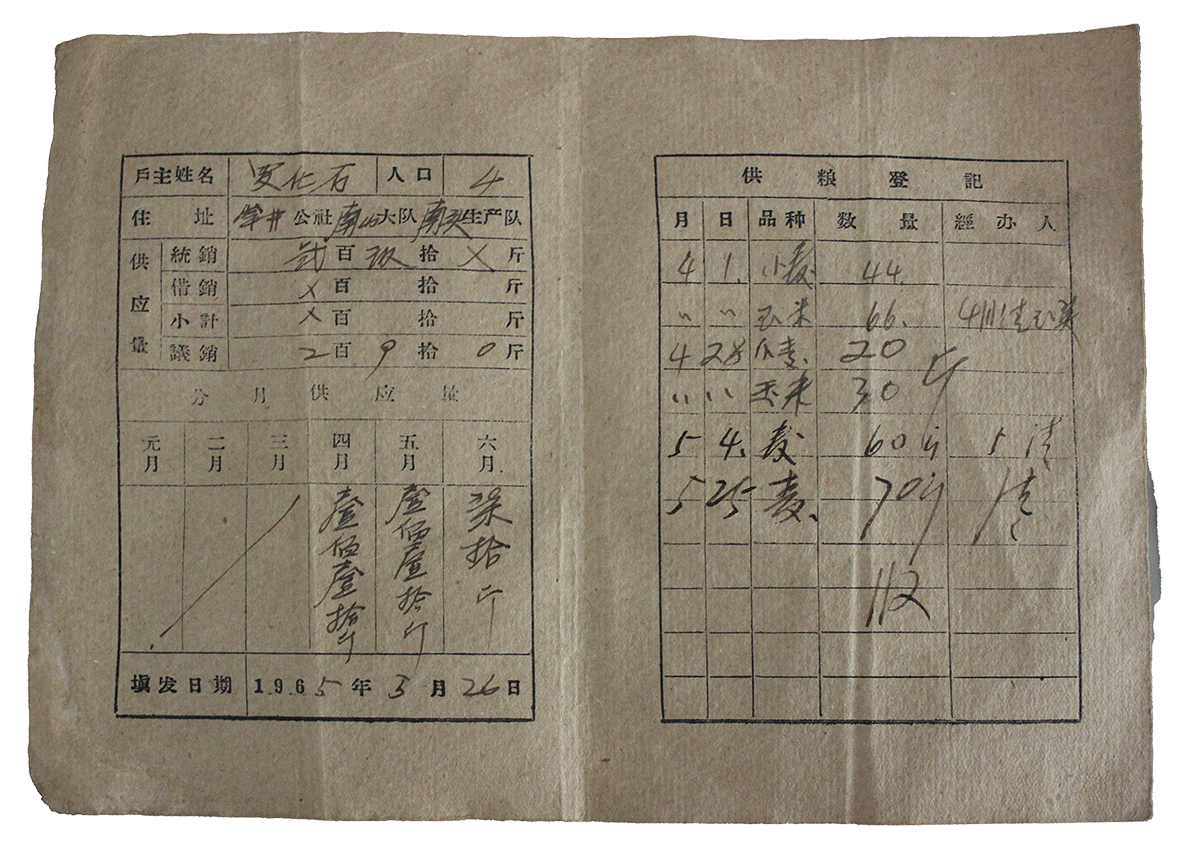 戶主姓名 化石 人口 4
住址 井公社南大队南头生产队
供应量
統銷 贰百玖拾X斤
借銷 X百 拾 斤
小計 X百 拾 斤
議銷 2百9拾0斤
分月供应量
元月 二月 三月 四月 五月 六月
壹佰壹拾斤 壹佰壹拾斤 柒拾斤
填发日期 1965年3月26日
供粮登記
月 日 品种 数量 經办人
4 1. 小麦 44.
〃 〃 玉米 66. 清
4 28 小麦 20斤
〃 〃 玉米 30
5 4. 麦 60斤 清
5 25 麦 70斤 清